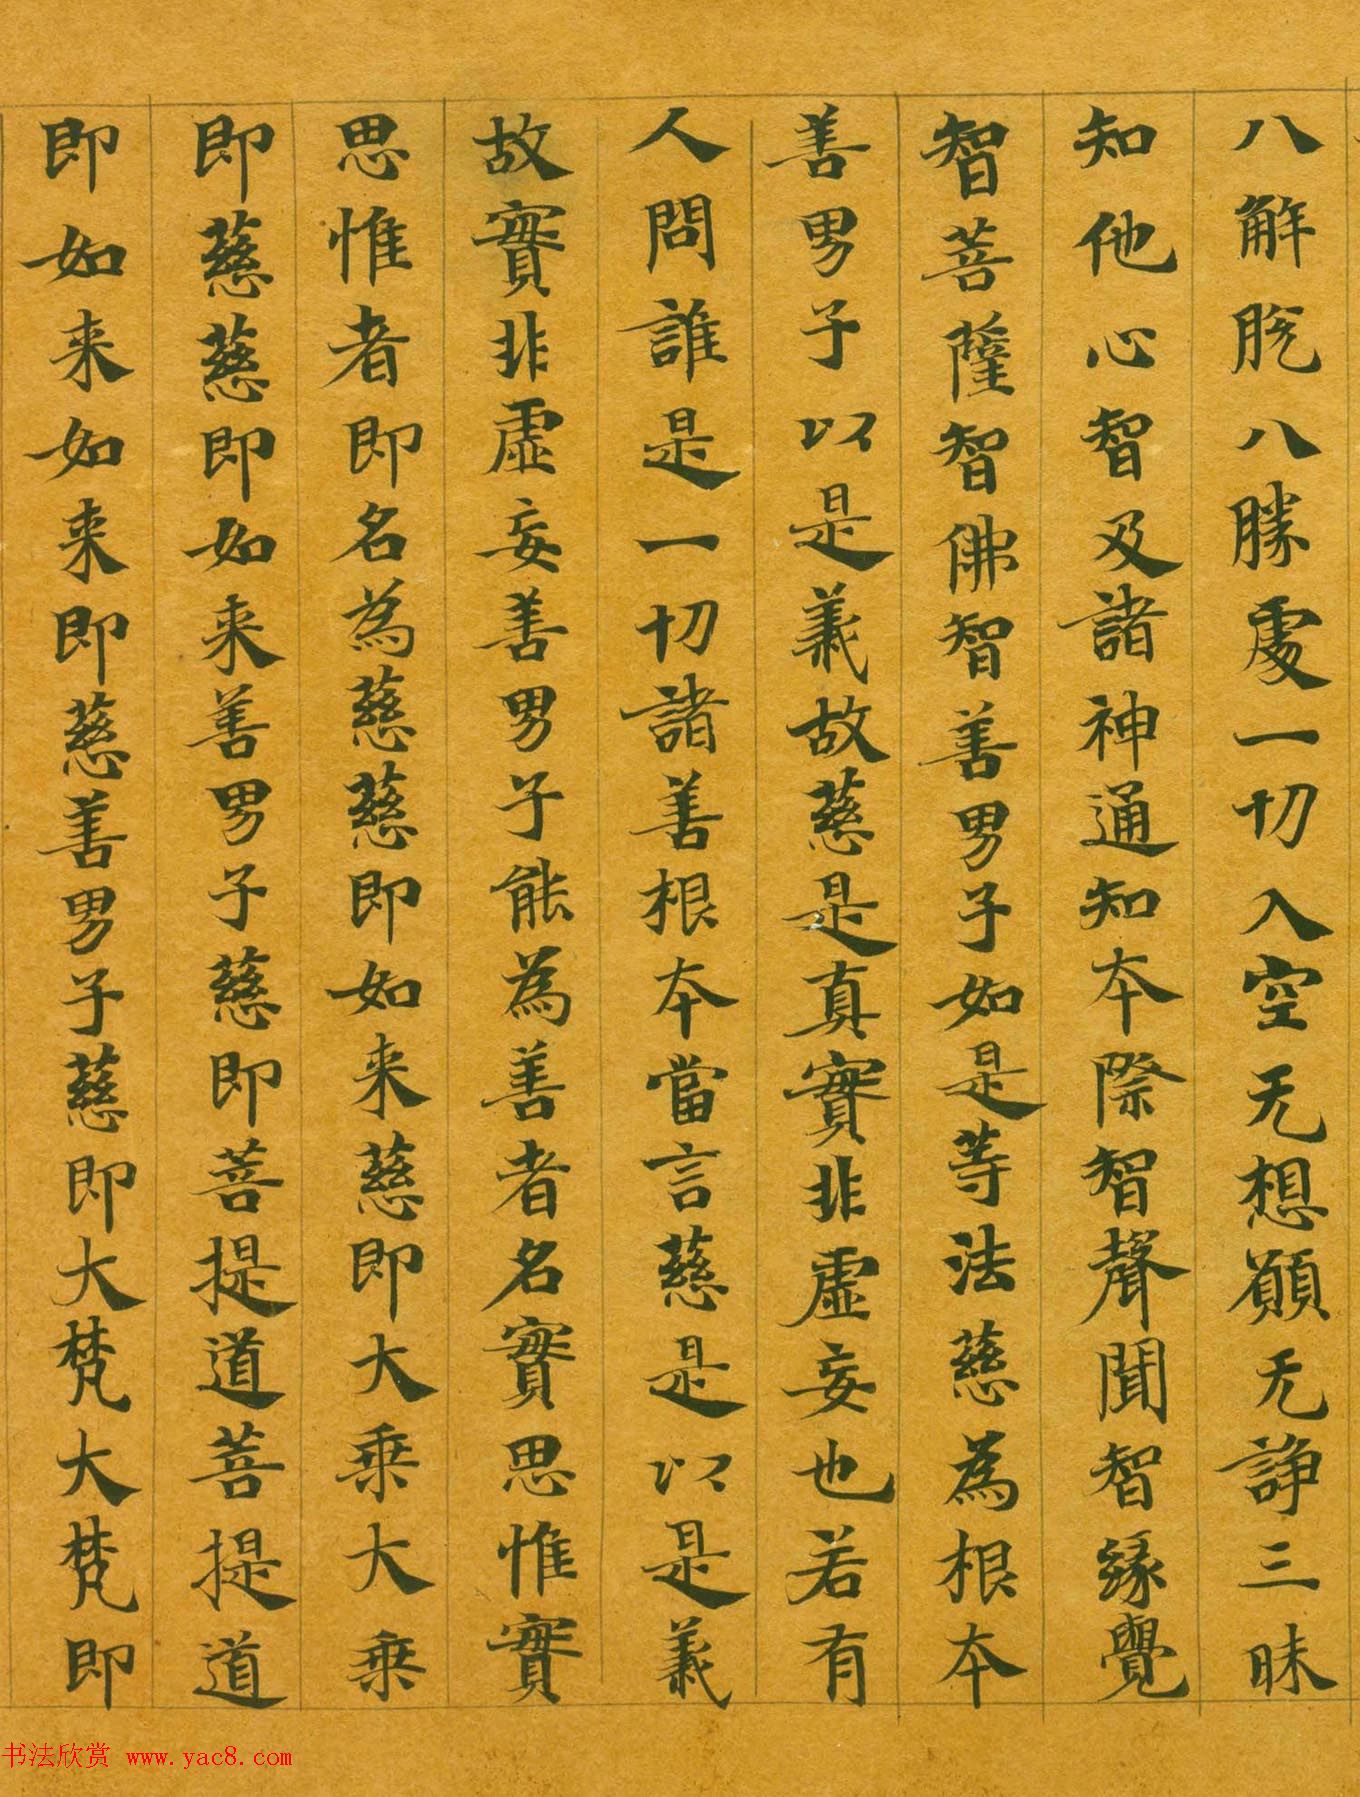 八解脫八勝處一切入空无想願无諍三昧
知他心智及諸神通知本際智聲聞智緣覺
智菩薩智佛智善男子如是等法慈為根本
善男子以是義故慈是真實非虛妄也若有
人問誰是一切諸善根本當言慈是以是義
故實非虛妄善男子能為善者名實思惟實
思惟者即名為慈慈即如来慈即大乗大乗
即慈慈即如来善男子慈即菩提道菩提道
即如来如来即慈善男子慈即大梵大梵即
书法欣赏 www.yac8.com